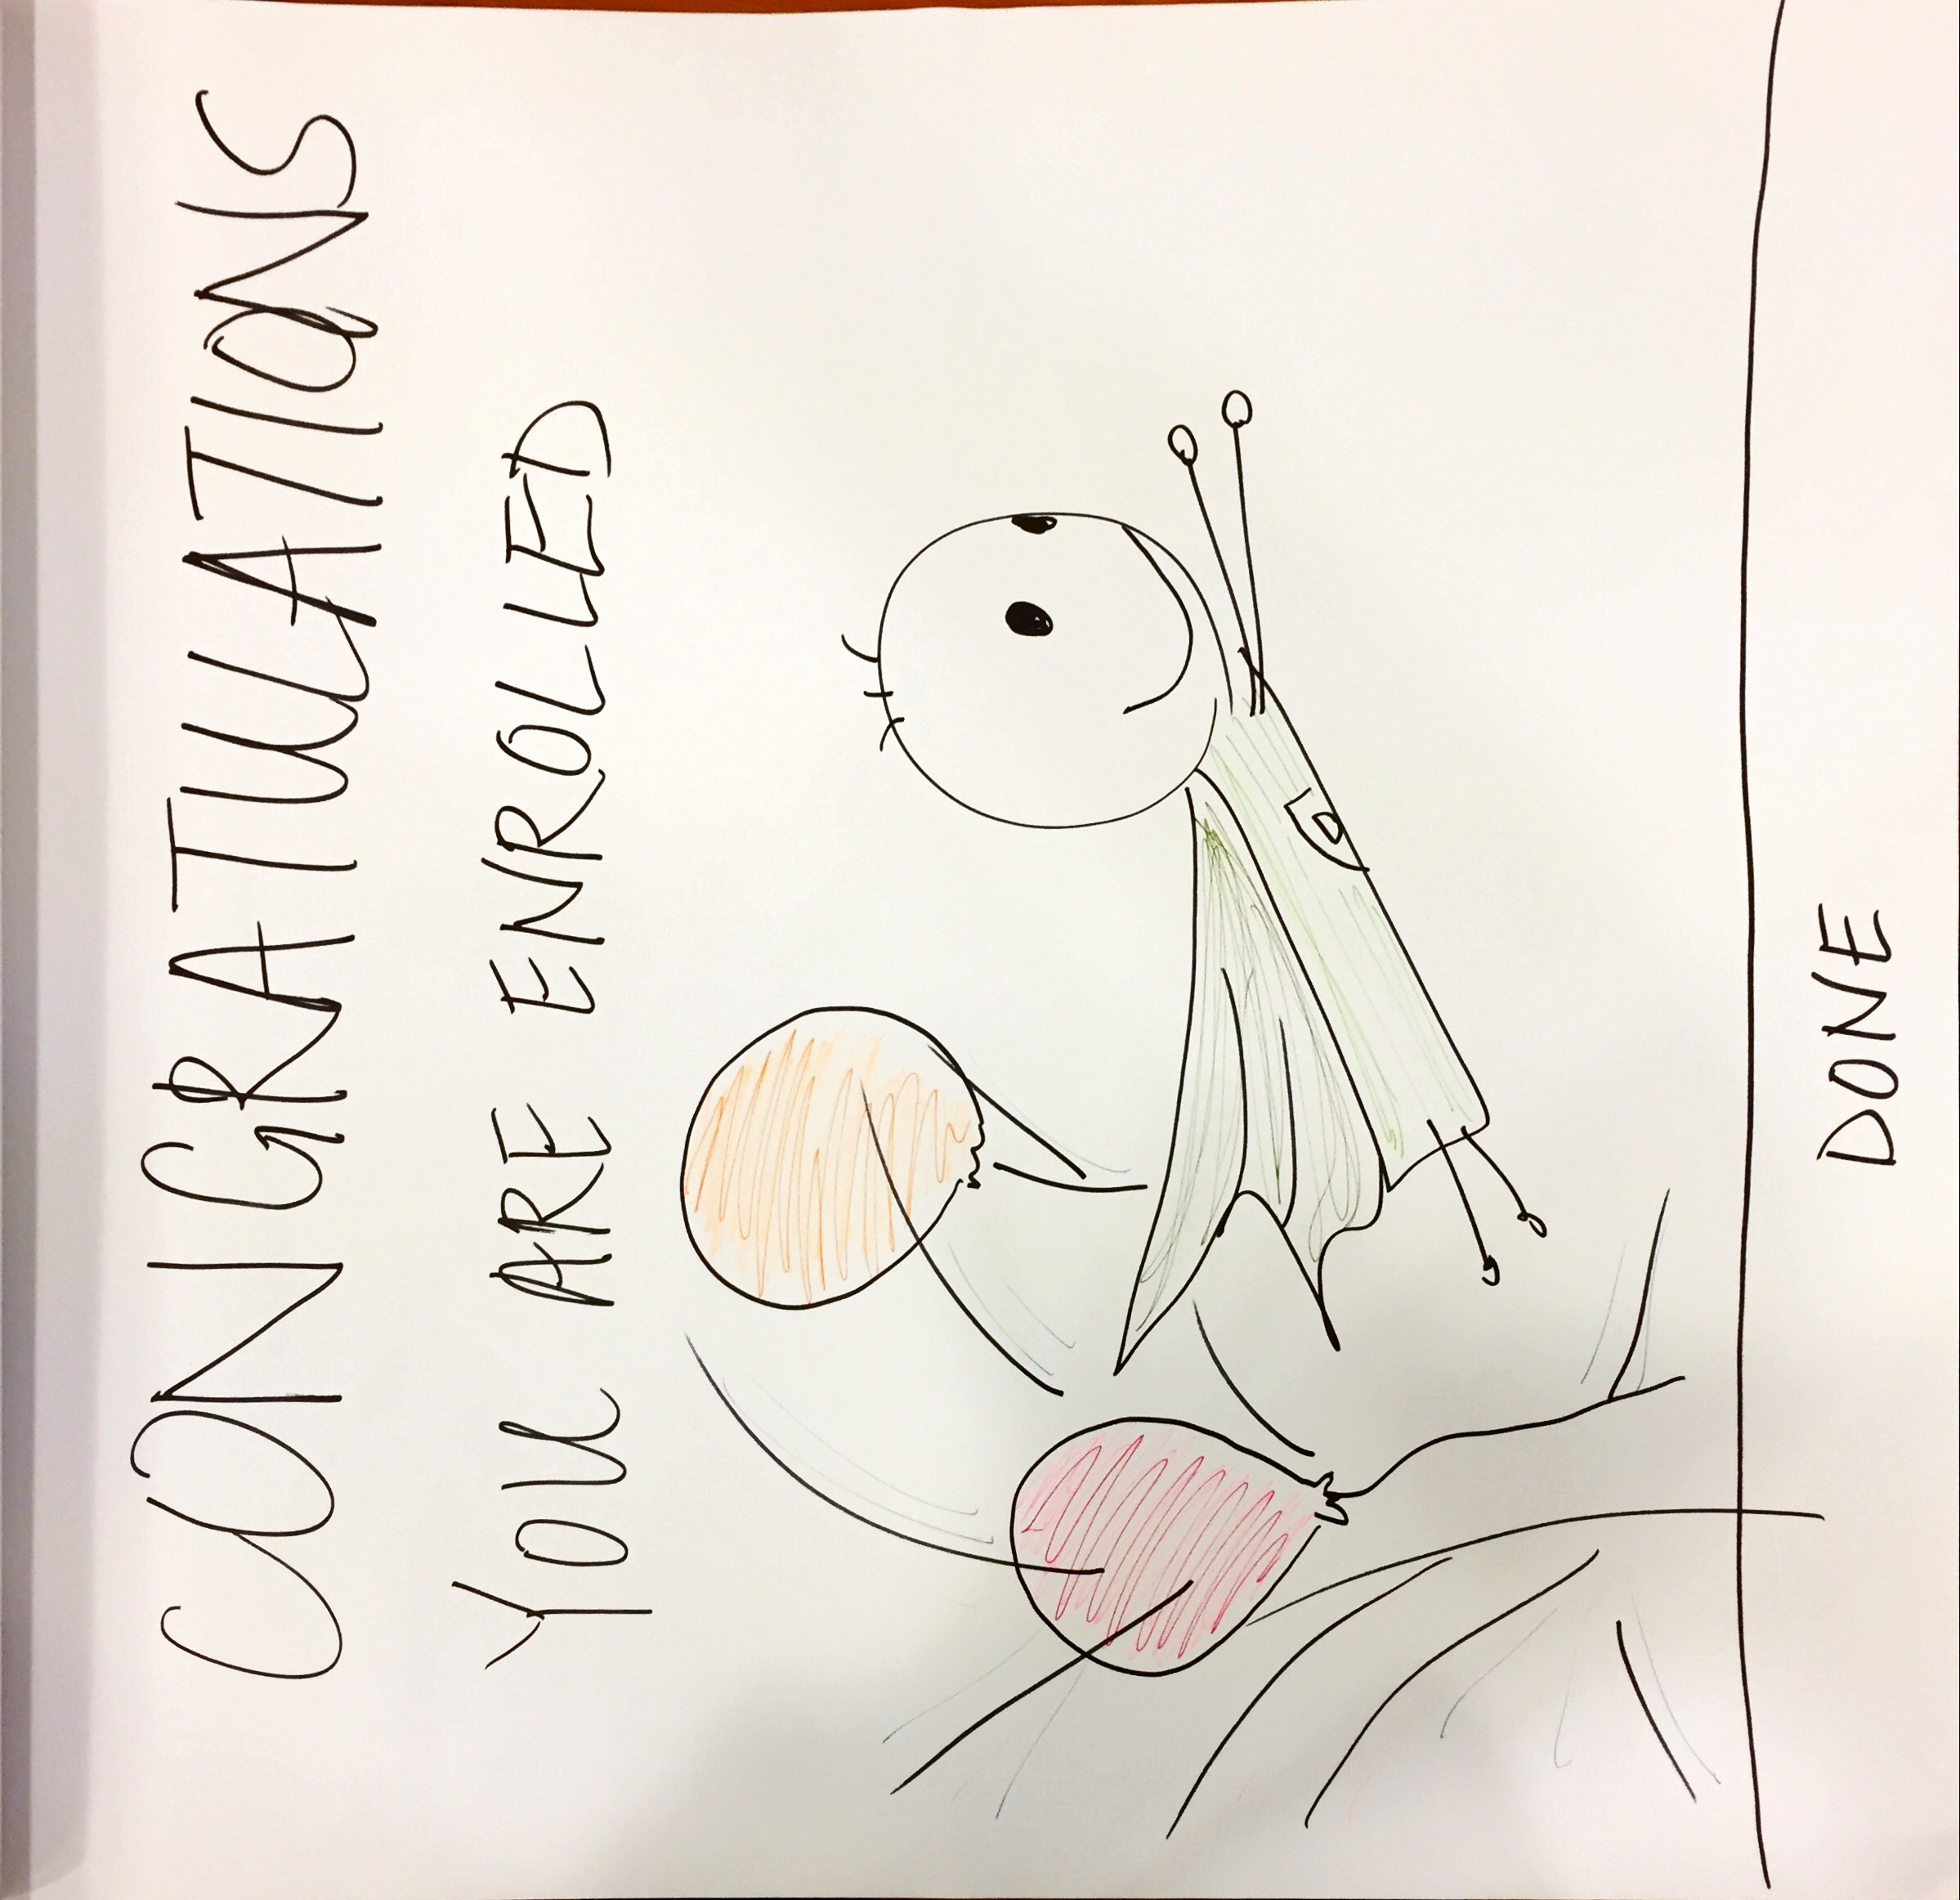 CONGRATULATIONS
YOU ARE ENROLLED
D
DONE